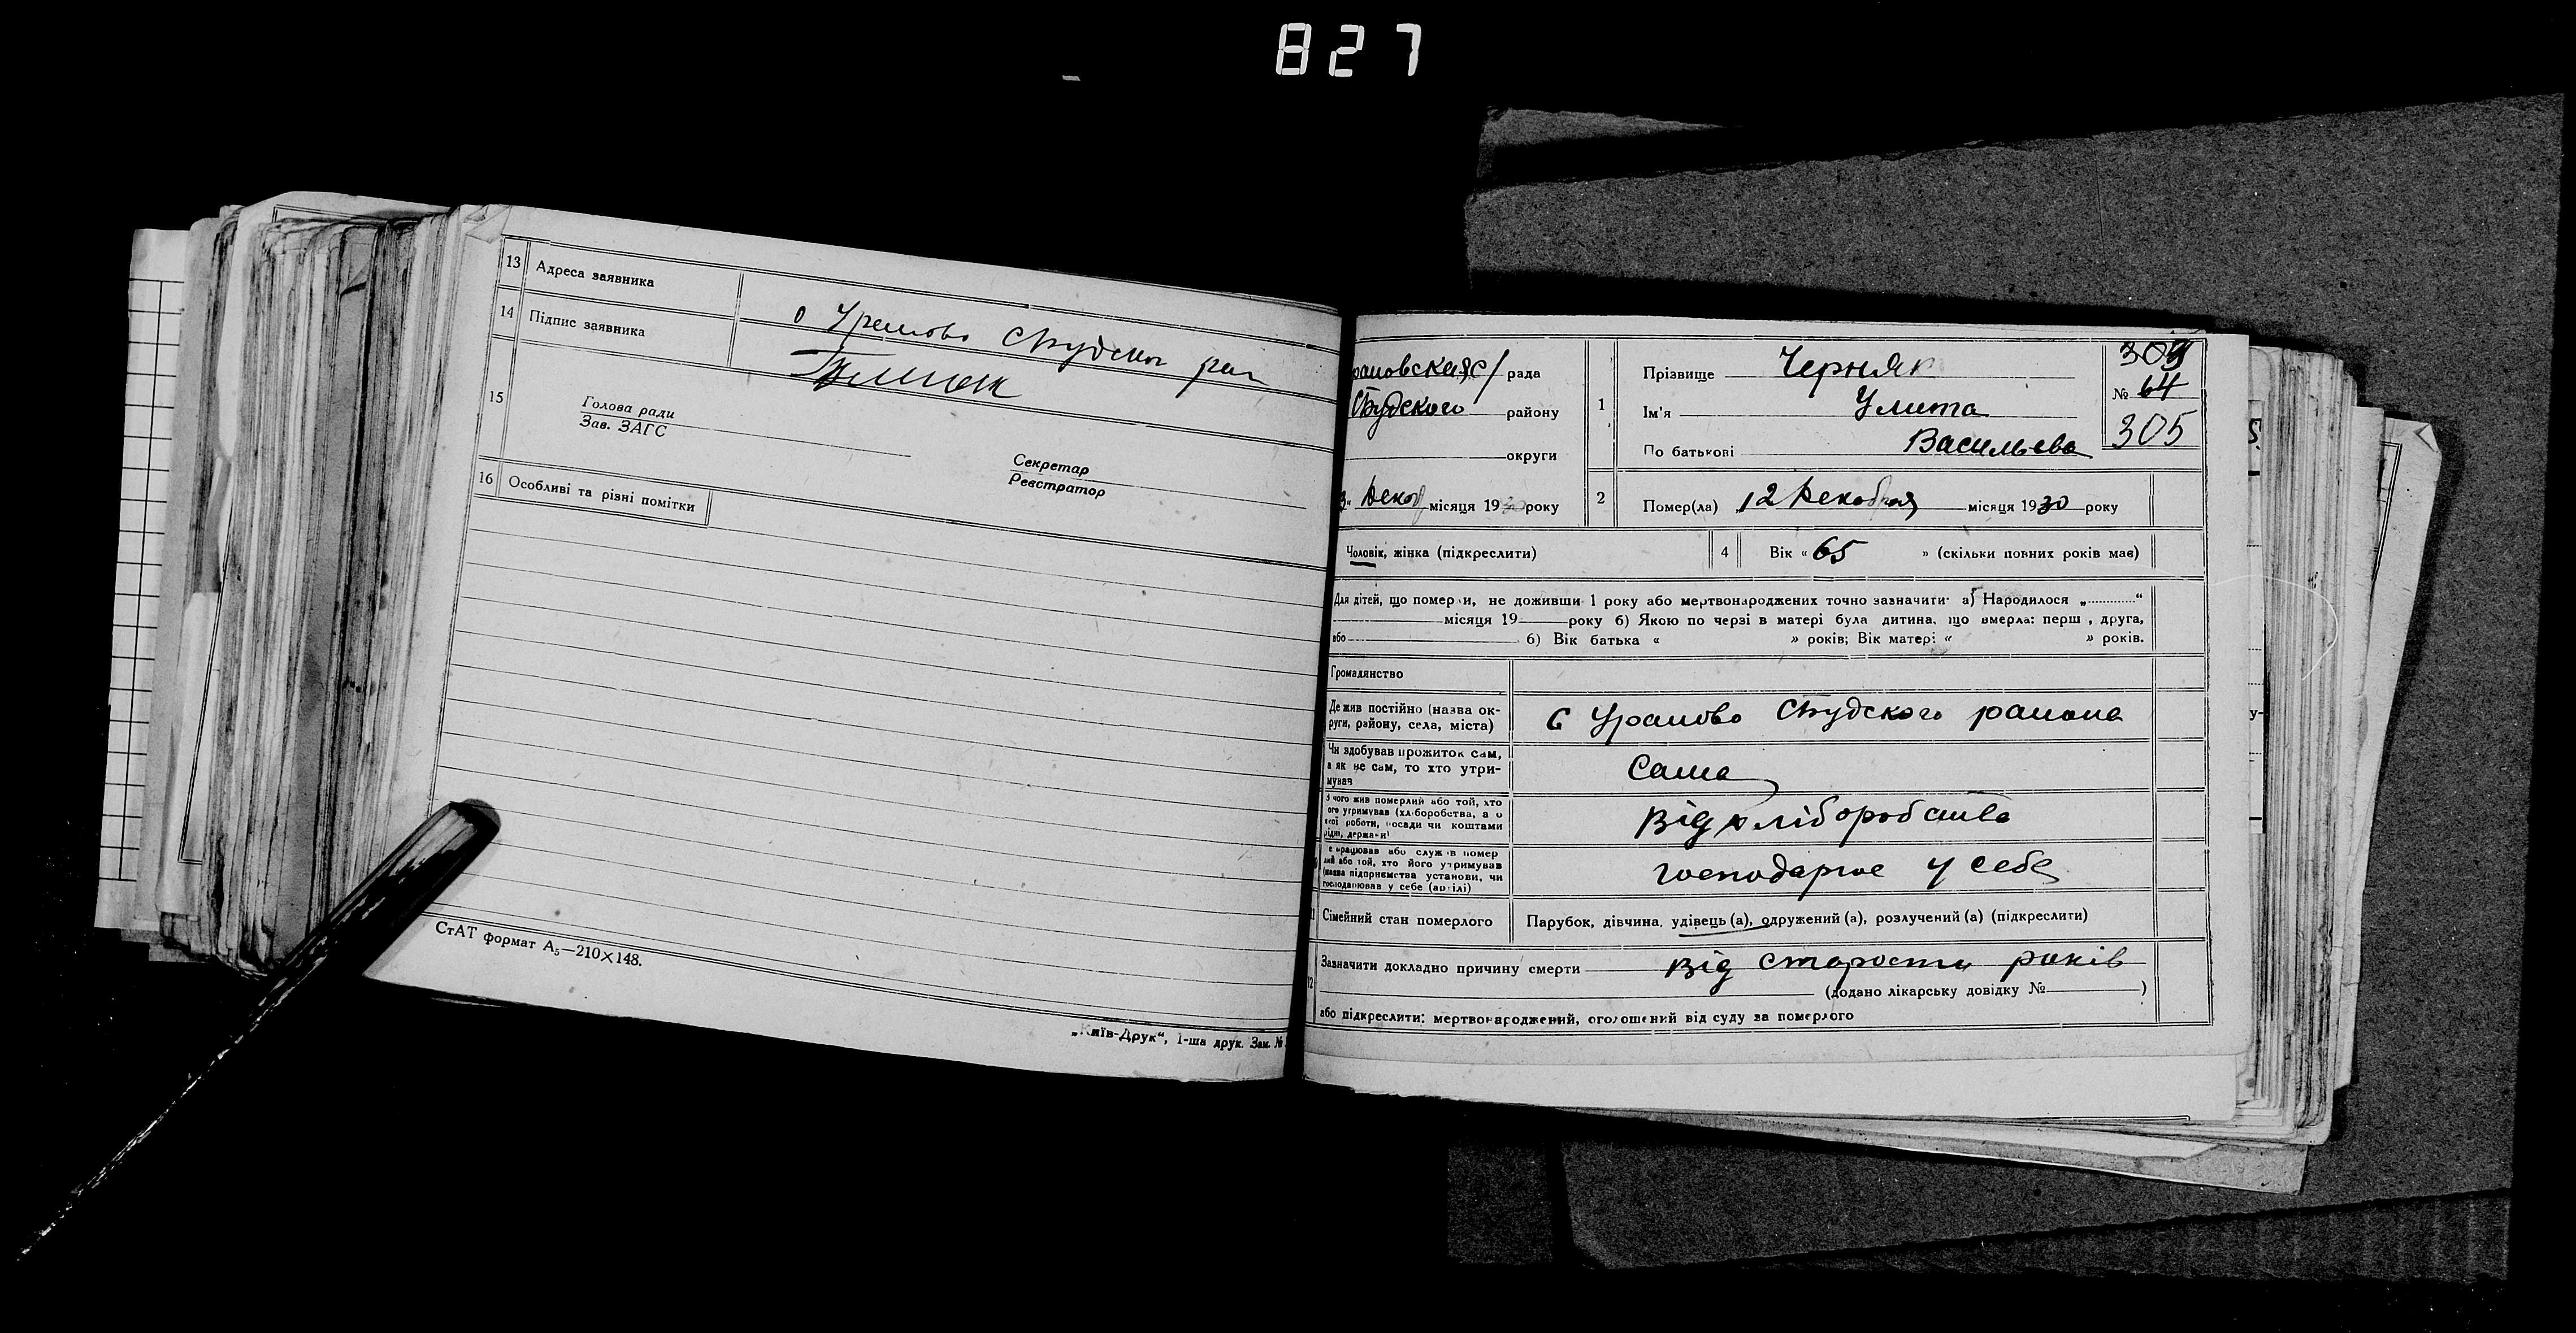 827
13 Адреса заявника
о Уремово Сбудског рай
14 Підпис заявника
15
Голова ради
Зав. ЗАГС
Секретар
Реєстратор
16 Особливі та різні помітки
СтАТ формат А5—210×148.
„Київ-Друк“, 1-ша друк. Зам. №
рановская с/ рада
Сбудского району
округи
Декаб місяця 1930 року
1
Прізвище Черняк
Ім'я Улита
По батькові Васильева
309
№ 64
305
2 Помер(ла) 12 Декабря місяця 1930 року
Чоловік, жінка (підкреслити)
4 Вік « 65 » (скільки повних років мав)
Для дітей, що померли, не доживши 1 року або мертвонароджених точно зазначити: а) Народилося „ “
місяця 19 року б) Якою по черзі в матері була дитина, що вмерла: перша, друга,
або б) Вік батька « » років; Вік матері « » років.
Громадянство
Де жив постійно (назва округи, району, села, міста)
с Ураново Сбудского района
Чи здобував прожиток сам, а як не сам, то хто утримував
Сама
З чого жив померлий або той, хто його утримував (хліборобства, а о якої роботи, посади чи коштами рідні, держави)
від хліборобства
Де працював або служив померлий або той, хто його утримував (назва підприємства установи, чи господарював у себе (артілі)
господарює у себе
11 Сімейний стан померлого
Парубок, дівчина, удівець (а), одружений (а), розлучений (а) (підкреслити)
12 Зазначити докладно причину смерти від старости років
(додано лікарську довідку № )
або підкреслити: мертвонароджений, оголошений від суду за померлого